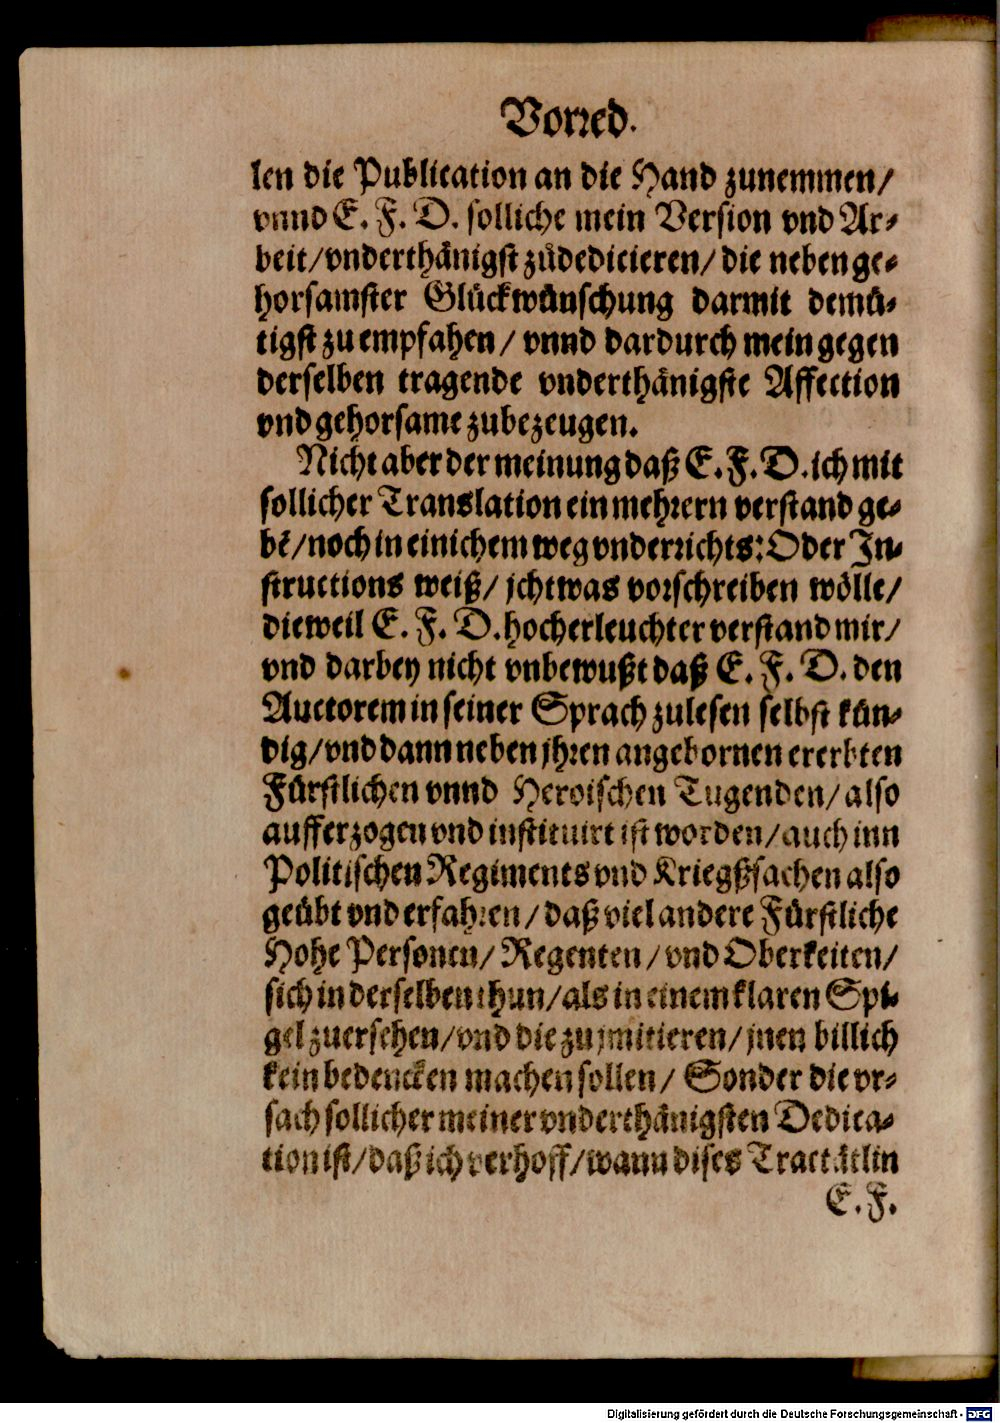 Vorred.
len die Publication an die Hand zunemmen/
vnnd E. F. D. solliche mein Version vnd Ar⸗
beit/vnderthänigst zůdedicieren/ die neben ge⸗
horsamster Glückwünschung darmit demü⸗
tigst zu empfahen/ vnnd dardurch mein gegen
derselben tragende vnderthänigste Affection
vnd gehorsame zubezeugen.
Nicht aber der meinung daß E. F. D. ich mit
sollicher Translation ein mehrern verstand ge⸗
bẽ/noch in einichem weg vnderrichts: Oder In⸗
structions weiß/ jchtwas vorschreiben wölle/
dieweil E. F. D. hocherleuchter verstand mir/
vnd darbey nicht vnbewußt daß E. F. D. den
Auctorem in seiner Sprach zulesen selbst kün⸗
dig/vnd dann neben jhren angebornen ererbten
Fürstlichen vnnd Heroischen Tugenden/ also
aufferzogen vnd instituirt ist worden/auch inn
Politischen Regiments vnd Kriegßsachen also
geübt vnd erfahren/daß viel andere Fürstliche
Hohe Personen/ Regenten/vnd Oberkeiten/
sich in derselben thun/als in einem klaren Spi⸗
gel zuersehen/vnd die zu jmitieren/jnen billich
kein bedencken machen sollen/ Sonder die vr⸗
sach sollicher meiner vnderthänigsten Dedica⸗
tion ist/daß ich verhoff/wann dises Tractätlin
E. F.
Digitalisierung gefördert durch die Deutsche Forschungsgemeinschaft - DFG